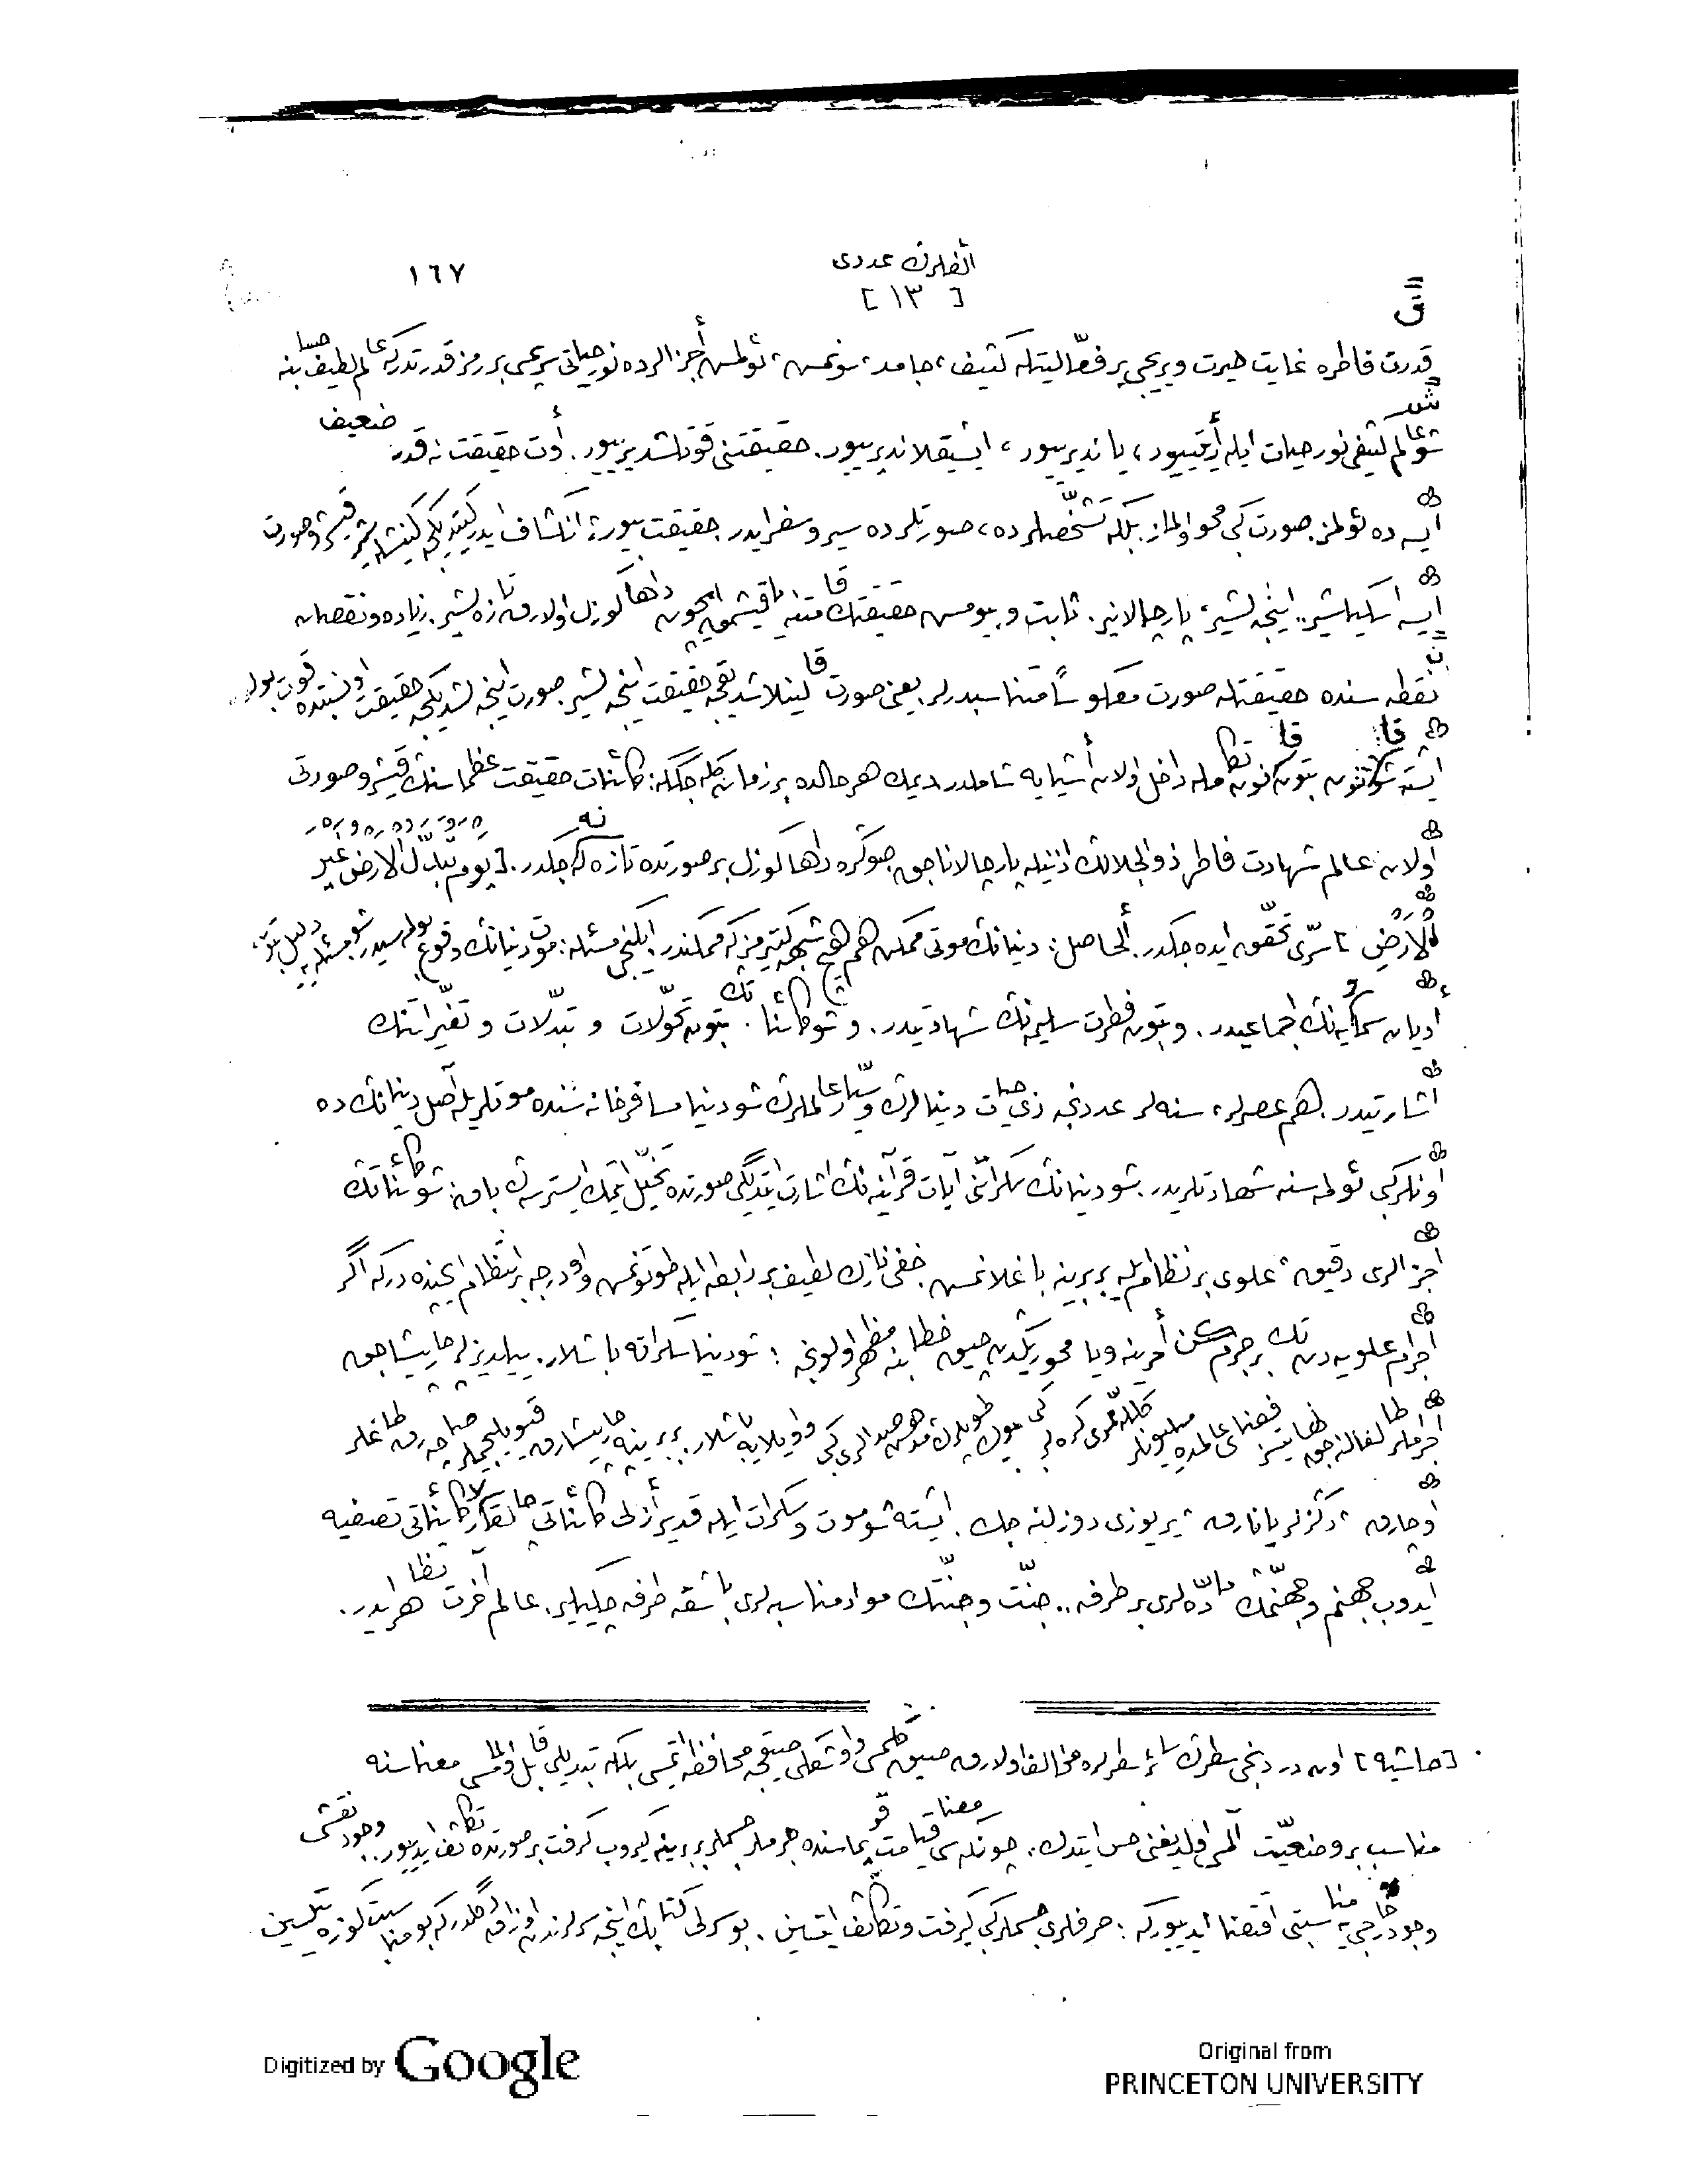 الفلرڭ عددى
١٦٧
[ ١٣ ]
قدرت فاطره غايت حيرت ويريجى بر فعّاليتله كثيف، جامد، سونمس، ئولمس أجزالرده نور حياتى سرپمسى بر رمز قدرتدركه عالم لطيف حسابنه
شو عالم كثيفى نور حيات ايله أريتييور، يانديرييور، ايشيقلانديرييور. حقيقتنى قوتلشديرييور. أوت حقيقت نه قدر ضعيف
ايسه ده ئولمز. صورت كبى محو اولماز. بلكه تشخّصلرده، صورتلرده سير و سفر ايدر. حقيقت بيور، انكشاف ايدر كيتدكجه كنيشلنير. قشر و صورت
ايسه اسكيلشير.. اينجه لشير، پارچالانير. ثابت و بيومس حقيقتك قامتنه ياقيشمق ايچون داها گوزل اولارق تازه لشير. زياده و نقصان
نقطه سنده حقيقتله صورت معكوساً متناسبدرلر. يعنى صورت قالينلاشدقجه حقيقت اينجه لشير. صورت اينجه لشدكجه حقيقت او نسبتده قوت بولور.
ايشته شو قانون بتون قانون تكامله داخل اولان أشيايه شاملدر. ديمك هر حالده بر زمان گله جككه: كائنات حقيقت عظماسنك قشر و صورتى
اولان عالم شهادت فاطر ذوالجلالك اذنيله پارچالاناجق. صوكره داها گوزل بر صورتده تازه لنه جكدر. [يَوْمَ تُبَدَّلُ الْاَرْضُ غَيْرَ
الْاَرْضِ] سرّى تحقّق ايده جكدر. ألحاصل: دنيانك موتى ممكن. هم هيچ شبهه گتيرمز كه ممكندر. ايكنجى مسئله: موت دنيانك وقوع بولمه سيدر. شو مسئله يه دليل بتون
أديان سماويه نك اجماعيدر. و بتون فطرت سليمه نك شهادتيدر. و شو كائناتك بتون تحوّلات و تبدّلات و تغيّراتنك
اشارتيدر. هم عصرلر، سنه لر عددنجه ذى حيات دنيالرڭ و سيّار عالملرڭ شو دنيا مسافرخانه سنده موتلريله أصل دنيانك ده
اونلر كبى ئولمه سنه شهادتلريدر. شو دنيانك سكراتنى آيات قرآنيه نك اشارت ايتديگى صورتده تخيّل ايتمك ايسترسه ڭ باق: شو كائناتك
أجزالرى دقيق، علوى بر نظام ايله بربرينه باغلانمس. خفى نازك لطيف بر رابطه ايله طوتونمس و او درجه بر انتظام ايچنده دركه اگر
أجرام علويه دن تك بر جرم كن أمرينه ويا محوريكدن چيق خطابنه مظهر اولونجه؛ شو دنيا سكراته باشلار. ييلديزلر چارپيشاجق
أجرملر طالغالانه جق. نهايتسز فضاى عالمده مليونلر گلله لرى كره لر كبى بيوك طوپلرك مدهش صدالرى كبى واويلايه باشلار. بربرينه چارپيشارق قيويلجيملر صاچارق طاغلر
اوچارق، دكزلر يانارق، ير يوزى دوزلنه جك. ايشته شو موت و سكرات ايله قدير أزلى كائناتى چالقالار. كائناتى تصفيه
ايدوب جهنم و جهنّمك مادّه لرى بر طرفه.. جنّت و جنّتك مواد مناسبه لرى باشقه طرفه چكيلير. عالم آخرت تظاهر ايدر.
[حاشيه] اون دردنجى سطرڭ سائر سطرلره مخالف اولارق صيق گلمسى و او شكلى صيقجه محافظه ايتمسى بلكه تبديلى قابل اولمامسى معناسنه
مناسب بر وضعيّت آلمش اولديغنى حس ايتدك. چونكه معناسى قيامت قوپماسنده جرملر جسملر بربرينه گيروب گرفت بر صورتده تكاثف ايدييور. وجود نقشى
وجود خارجى يه مناسبتى اقتضا ايدييوركه: حرفلرى جسملر كبى گرفت و تكاثف ايتسين. بو سرلى كتابك اينجه سرلرندن اوزاق دگلدركه بو مناسبت گوزه تيلسين
Digitized by Google
Original from
PRINCETON UNIVERSITY